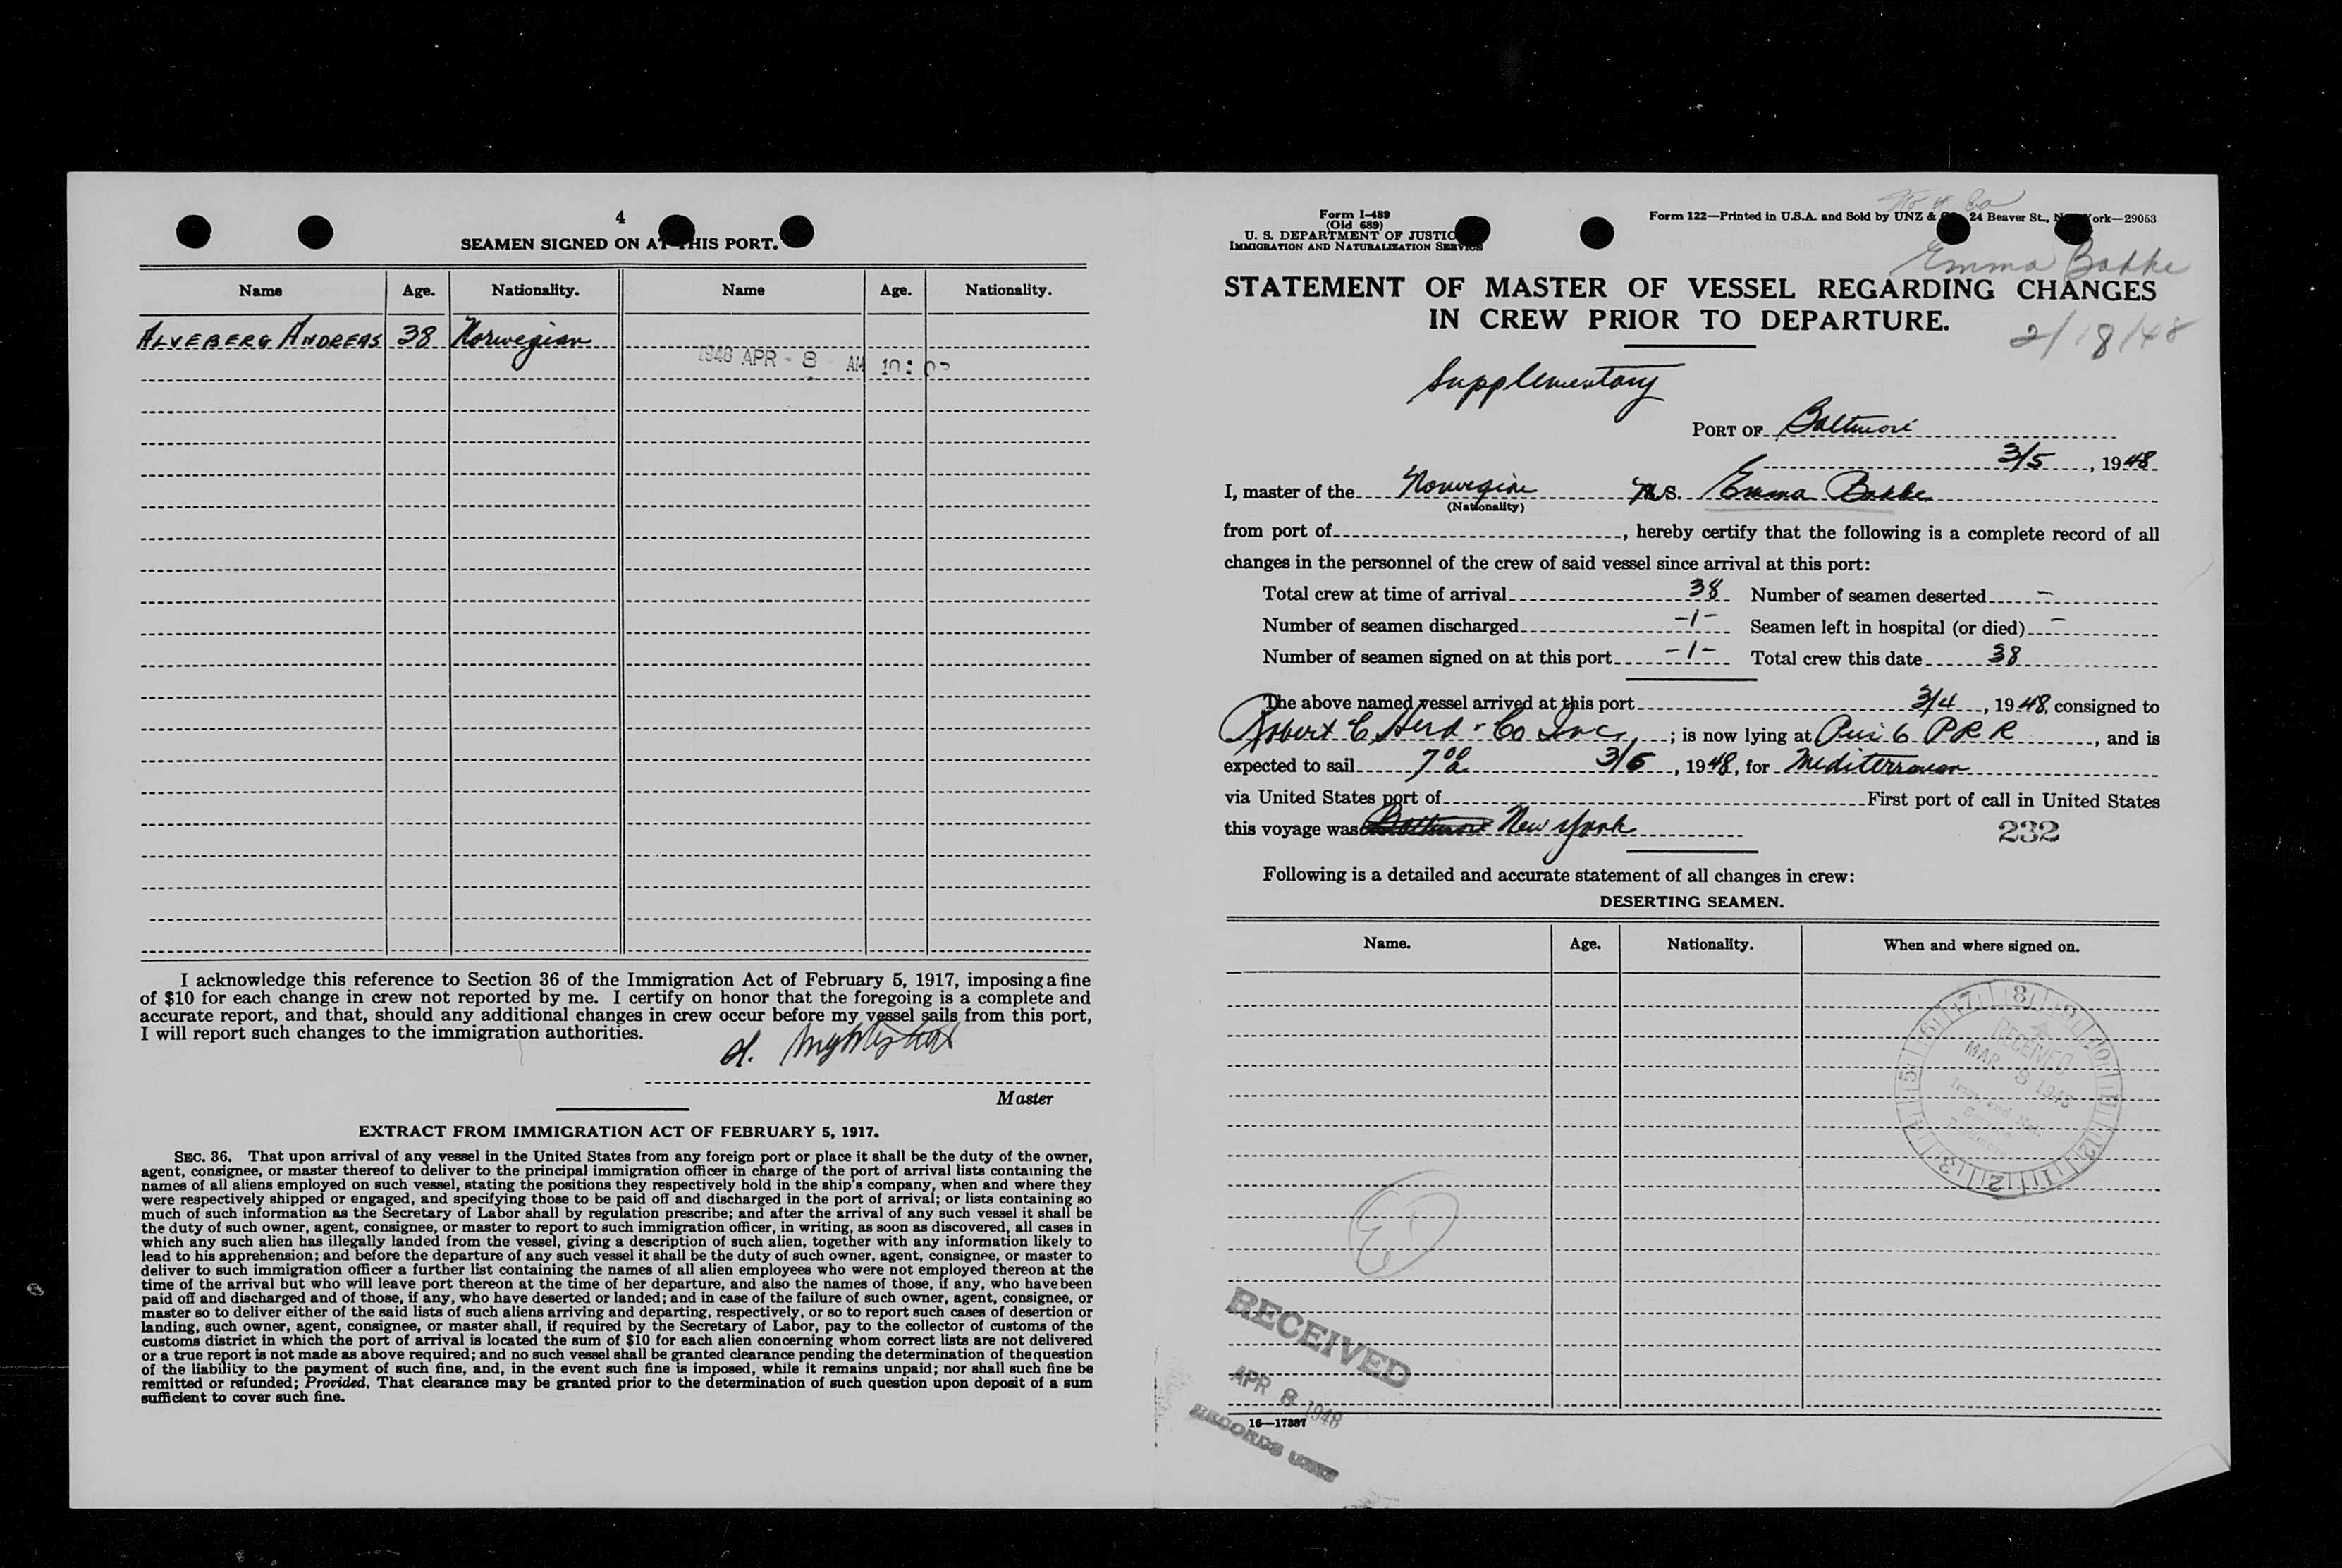 4
SEAMEN SIGNED ON AT THIS PORT.
Name Age. Nationality. Name Age. Nationality.
ALVEBERG ANDREAS 38 Norwegian
APR - 8 AM 10:0
I acknowledge this reference to Section 36 of the Immigration Act of February 5, 1917, imposing a fine
of $10 for each change in crew not reported by me. I certify on honor that the foregoing is a complete and
accurate report, and that, should any additional changes in crew occur before my vessel sails from this port,
I will report such changes to the immigration authorities.
Master
EXTRACT FROM IMMIGRATION ACT OF FEBRUARY 5, 1917.
SEC. 36. That upon arrival of any vessel in the United States from any foreign port or place it shall be the duty of the owner,
agent, consignee, or master thereof to deliver to the principal immigration officer in charge of the port of arrival lists containing the
names of all aliens employed on such vessel, stating the positions they respectively hold in the ship's company, when and where they
were respectively shipped or engaged, and specifying those to be paid off and discharged in the port of arrival; or lists containing so
much of such information as the Secretary of Labor shall by regulation prescribe; and after the arrival of any such vessel it shall be
the duty of such owner, agent, consignee, or master to report to such immigration officer, in writing, as soon as discovered, all cases in
which any such alien has illegally landed from the vessel, giving a description of such alien, together with any information likely to
lead to his apprehension; and before the departure of any such vessel it shall be the duty of such owner, agent, consignee, or master to
deliver to such immigration officer a further list containing the names of all alien employees who were not employed thereon at the
time of the arrival but who will leave port thereon at the time of her departure, and also the names of those, if any, who have been
paid off and discharged and of those, if any, who have deserted or landed; and in case of the failure of such owner, agent, consignee, or
master so to deliver either of the said lists of such aliens arriving and departing, respectively, or so to report such cases of desertion or
landing, such owner, agent, consignee, or master shall, if required by the Secretary of Labor, pay to the collector of customs of the
customs district in which the port of arrival is located the sum of $10 for each alien concerning whom correct lists are not delivered
or a true report is not made as above required; and no such vessel shall be granted clearance pending the determination of the question
of the liability to the payment of such fine, and, in the event such fine is imposed, while it remains unpaid; nor shall such fine be
remitted or refunded; Provided, That clearance may be granted prior to the determination of such question upon deposit of a sum
sufficient to cover such fine.
Form I-489
(Old 689)
U. S. DEPARTMENT OF JUSTIC
IMMIGRATION AND NATURALIZATION SERVICE
Form 122—Printed in U.S.A. and Sold by UNZ & 24 Beaver St., N ork—29053
Emma Bakke
STATEMENT OF MASTER OF VESSEL REGARDING CHANGES
IN CREW PRIOR TO DEPARTURE.
2/18/48
Supplementary
PORT OF Baltimore
3/5, 1948
I, master of the Norwegian M.S. Emma Bakke
(Nationality)
from port of , hereby certify that the following is a complete record of all
changes in the personnel of the crew of said vessel since arrival at this port:
Total crew at time of arrival 38 Number of seamen deserted -
Number of seamen discharged -1- Seamen left in hospital (or died) -
Number of seamen signed on at this port -1- Total crew this date 38
The above named vessel arrived at this port 3/4, 1948, consigned to
Robert C Herd & Co Inc.; is now lying at Pier 6 PRR, and is
expected to sail 7 00 a 3/6, 1948, for Mediterranean
via United States port of First port of call in United States
this voyage was New York
232
Following is a detailed and accurate statement of all changes in crew:
DESERTING SEAMEN.
Name. Age. Nationality. When and where signed on.
7 8 9 10 11 12 1 2 3 4 5 6
RECEIVED
MAR 8 1948
RECEIVED
APR 8 1948
RECORDS UNIT
16—17887